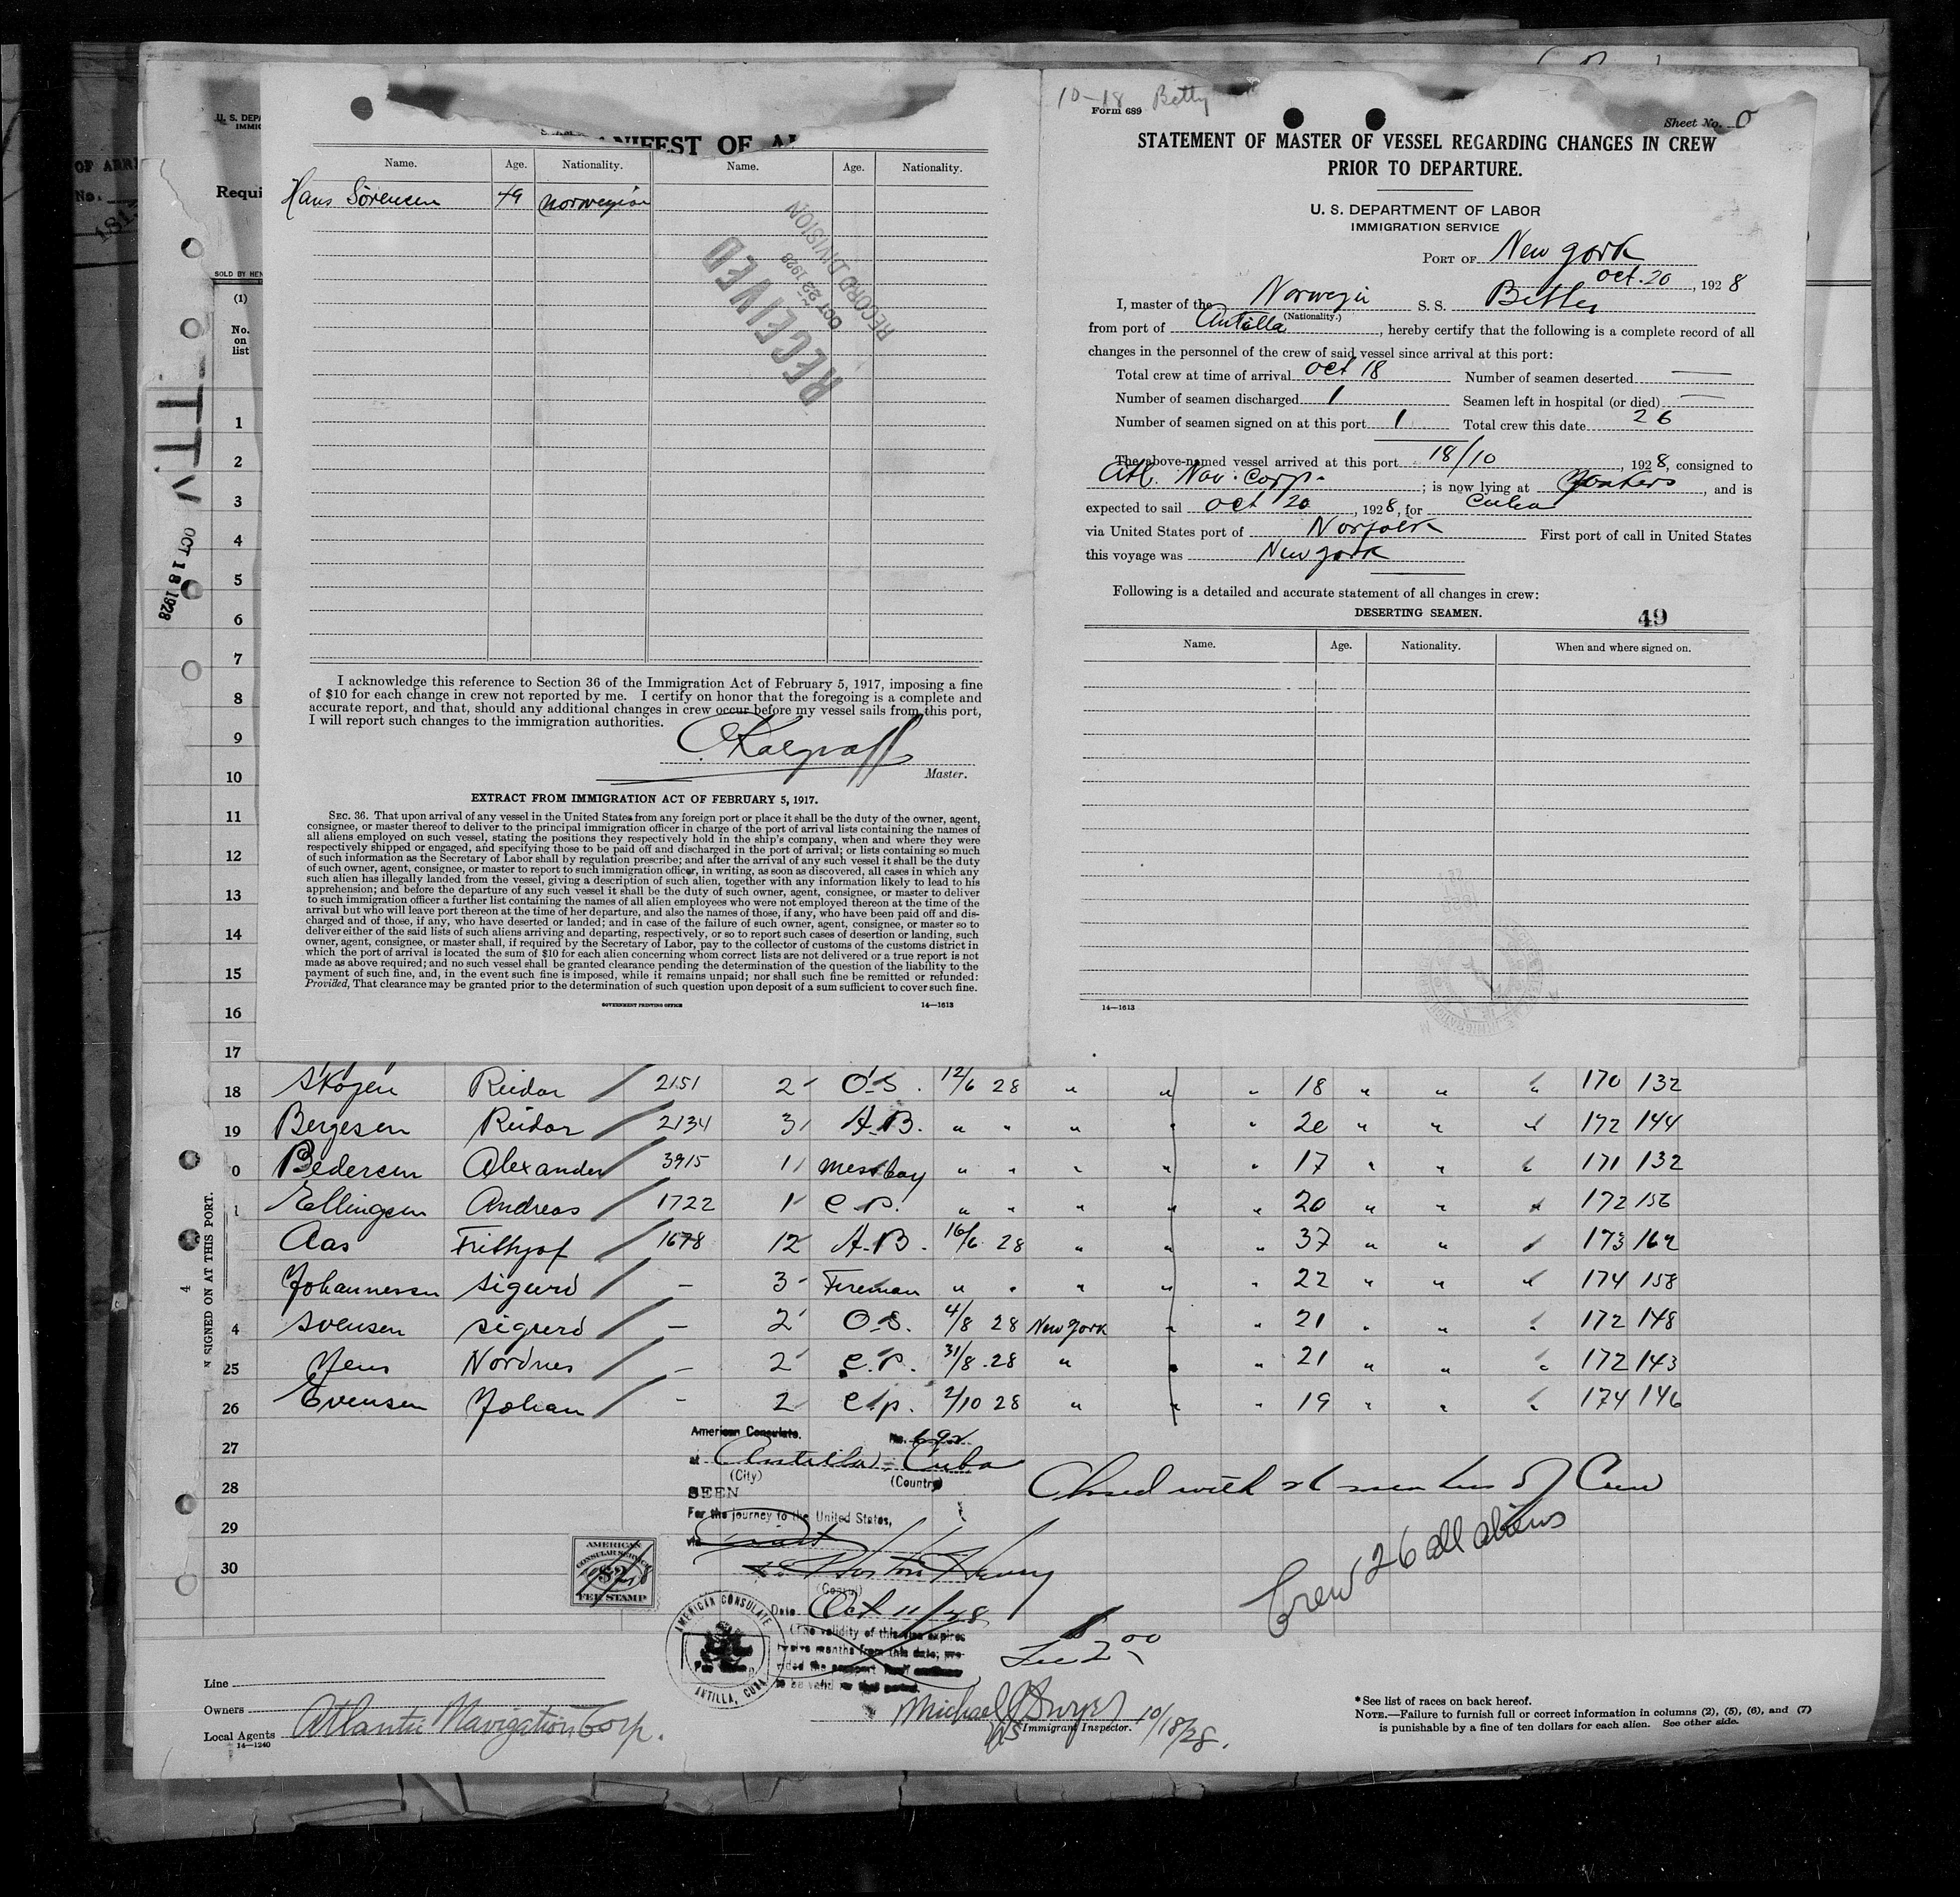 10-18 Betty
Form 689
Sheet No. 0
STATEMENT OF MASTER OF VESSEL REGARDING CHANGES IN CREW
PRIOR TO DEPARTURE.
U. S. DEPARTMENT OF LABOR
IMMIGRATION SERVICE
PORT OF New York
Oct. 20, 1928
I, master of the Norwegia S. S.
(Nationality.)
from port of Antilla, hereby certify that the following is a complete record of all
changes in the personnel of the crew of said vessel since arrival at this port:
Total crew at time of arrival Oct 18 Number of seamen deserted —
Number of seamen discharged 1 Seamen left in hospital (or died) —
Number of seamen signed on at this port 1 Total crew this date 26
The above-named vessel arrived at this port 18/10, 1928, consigned to
Atl. Nav. Corp. ; is now lying at Yonkers, and is
expected to sail Oct 20, 1928, for Cuba
via United States port of Norfolk First port of call in United States
this voyage was New York
Following is a detailed and accurate statement of all changes in crew:
DESERTING SEAMEN. 49
Name. Age. Nationality. When and where signed on.
14—1613
U. S. DEPA
IMMIG
MANIFEST OF AL
Requi
SOLD BY HEN
OF ARRI
No.
Name. Age. Nationality. Name. Age. Nationality.
Hans Sörensen 49 Norwegian
RECEIVED
OCT 22 1928
RECORD DIVISION
I acknowledge this reference to Section 36 of the Immigration Act of February 5, 1917, imposing a fine
of $10 for each change in crew not reported by me. I certify on honor that the foregoing is a complete and
accurate report, and that, should any additional changes in crew occur before my vessel sails from this port,
I will report such changes to the immigration authorities.
Master.
EXTRACT FROM IMMIGRATION ACT OF FEBRUARY 5, 1917.
SEC. 36. That upon arrival of any vessel in the United States from any foreign port or place it shall be the duty of the owner, agent,
consignee, or master thereof to deliver to the principal immigration officer in charge of the port of arrival lists containing the names of
all aliens employed on such vessel, stating the positions they respectively hold in the ship's company, when and where they were
respectively shipped or engaged, and specifying those to be paid off and discharged in the port of arrival; or lists containing so much
of such information as the Secretary of Labor shall by regulation prescribe; and after the arrival of any such vessel it shall be the duty
of such owner, agent, consignee, or master to report to such immigration officer, in writing, as soon as discovered, all cases in which any
such alien has illegally landed from the vessel, giving a description of such alien, together with any information likely to lead to his
apprehension; and before the departure of any such vessel it shall be the duty of such owner, agent, consignee, or master to deliver
to such immigration officer a further list containing the names of all alien employees who were not employed thereon at the time of the
arrival but who will leave port thereon at the time of her departure, and also the names of those, if any, who have been paid off and dis-
charged and of those, if any, who have deserted or landed; and in case of the failure of such owner, agent, consignee, or master so to
deliver either of the said lists of such aliens arriving and departing, respectively, or so to report such cases of desertion or landing, such
owner, agent, consignee, or master shall, if required by the Secretary of Labor, pay to the collector of customs of the customs district in
which the port of arrival is located the sum of $10 for each alien concerning whom correct lists are not delivered or a true report is not
made as above required; and no such vessel shall be granted clearance pending the determination of the question of the liability to the
payment of such fine, and, in the event such fine is imposed, while it remains unpaid; nor shall such fine be remitted or refunded:
Provided, That clearance may be granted prior to the determination of such question upon deposit of a sum sufficient to cover such fine.
GOVERNMENT PRINTING OFFICE 14—1613
(1)
No.
on
list
1
2
3
4
5
6
7
8
9
10
11
12
13
14
15
16
17
OCT 18 1928
18 Skogen Reidar 2151 2 O.S. 12/6 28 " " " 18 " " " 170 132
19 Bergesen Reidar 2134 3 A.B. " " " " " 20 " " " 172 144
0 Pedersen Alexander 3915 1 Messboy " " " " " 17 " " " 171 132
1 Ellingsen Andreas 1722 1 C.P. " " " " " 20 " " " 172 156
Aas Frithjof 1678 12 A.B. 16/6 28 " " " 37 " " " 173 162
Johannessen Sigurd — 3 Fireman " " " " " 22 " " " 174 158
4 Svensen Sigurd — 2 O.S. 4/8 28 New York " " 21 " " " 172 148
25 Jens Nordnes — 2 C.P. 31/8 28 " " " 21 " " " 172 143
26 Evensen Johan - 2 C.P. 2/10 28 " " " 19 " " " 174 146
27
28
29
30
4
N SIGNED ON AT THIS PORT.
American Consulate. No. 692
at Antilla - Cuba
(City) (Country)
SEEN
For the journey to the United States,
via
(Consul)
Date Oct 11/28
(The validity of this visa expires
twelve months from this date; pro-
vided the passport itself continues
to be valid for that period.
AMERICAN CONSULATE
ANTILLA, CUBA
AMERICAN
CONSULAR SERVICE
$2
FEE STAMP
Fee 2.00
Closed with 26 members of Crew
Crew 26 all aliens
Line
Owners
Local Agents Atlantic Navigation Corp.
14—1240
Michael J Dwyer 10/18/28.
US Immigrant Inspector.
*See list of races on back hereof.
NOTE.—Failure to furnish full or correct information in columns (2), (5), (6), and (7)
is punishable by a fine of ten dollars for each alien. See other side.